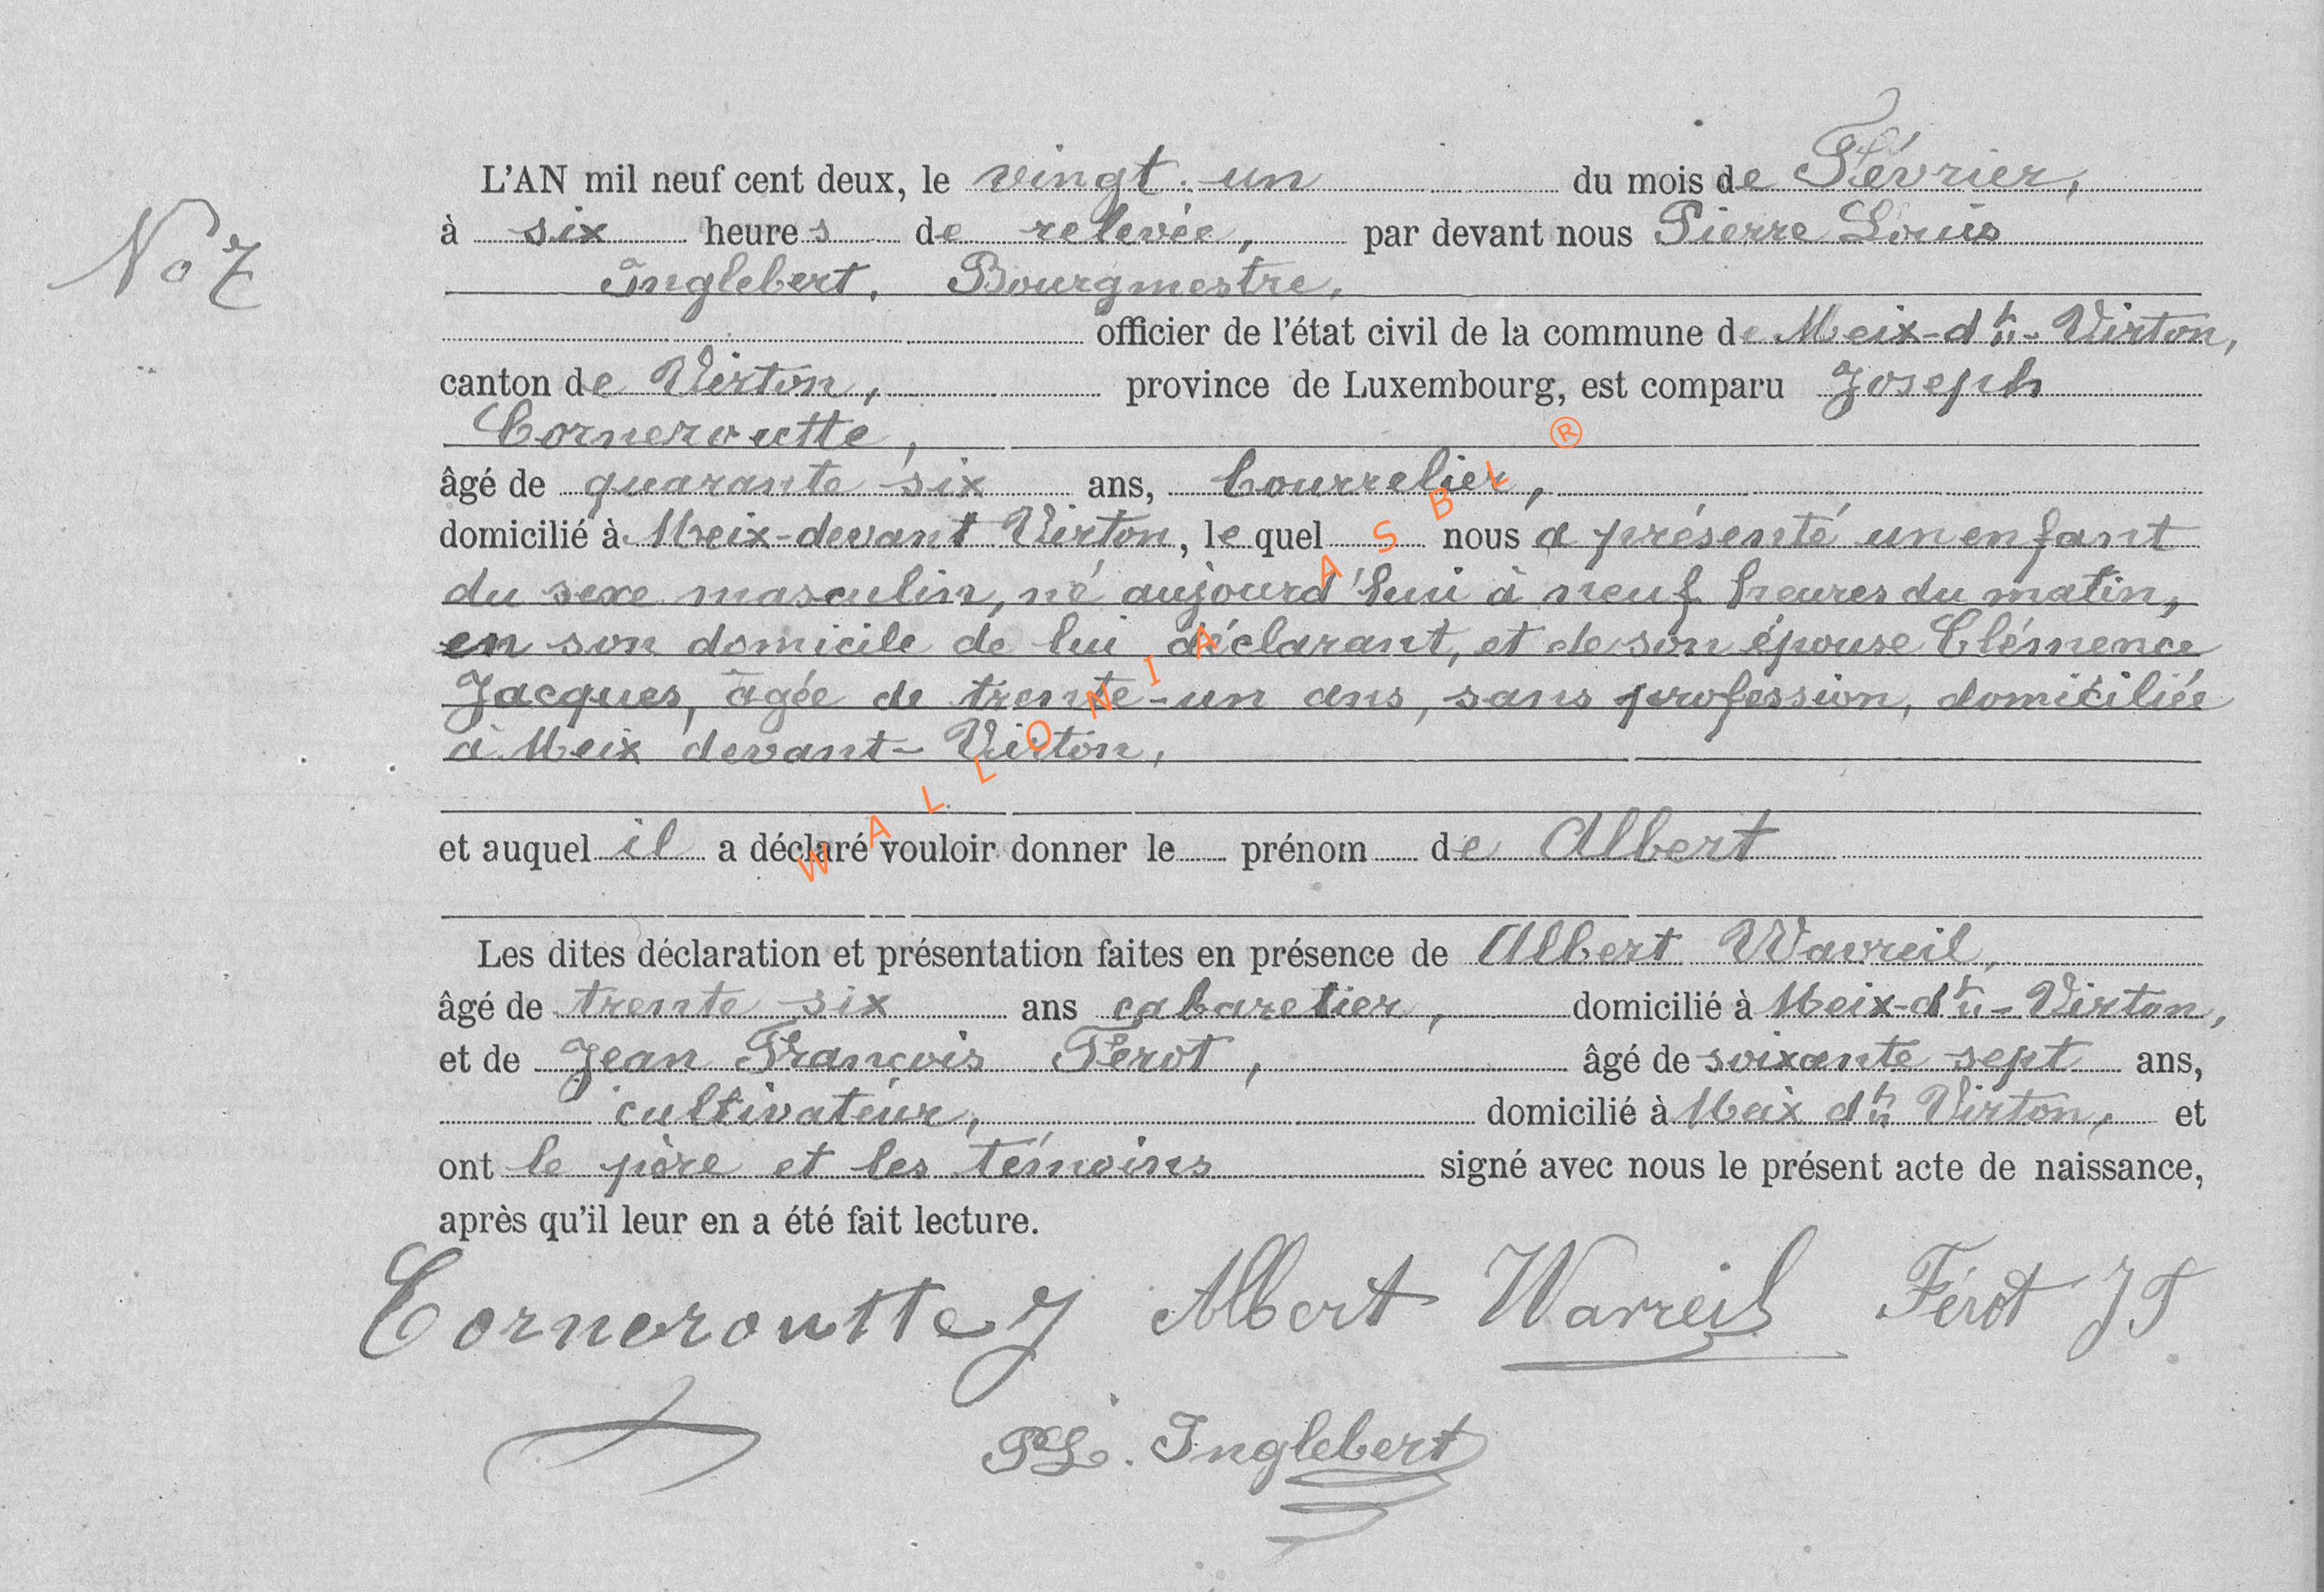 No 7
L'AN mil neuf cent deux, le vingt-un du mois de Février,
à six heures de relevée, par devant nous Pierre Louis
Inglebert, Bourgmestre,
officier de l'état civil de la commune de Meix-dt-Virton,
canton de Virton, province de Luxembourg, est comparu Joseph
Corneroutte,
âgé de quarante six ans, bourrelier,
domicilié à Meix-devant Virton, le quel nous a présenté un enfant
du sexe masculin, né aujourd'hui à neuf heures du matin,
en son domicile de lui déclarant, et de son épouse Clémence
Jacques, âgée de trente-un ans, sans profession, domiciliée
à Meix devant-Virton,
et auquel il a déclaré vouloir donner le prénom de Albert
Les dites déclaration et présentation faites en présence de Albert Wavreil,
âgé de trente six ans cabaretier, domicilié à Meix-dt-Virton,
et de Jean François Ferot, âgé de soixante sept ans,
cultivateur, domicilié à Meix dt Virton, et
ont le père et les témoins signé avec nous le présent acte de naissance,
après qu'il leur en a été fait lecture.
Corneroutte J Albert Wavreil Férot JF
PL. Inglebert
WALLONIA ASBL ®